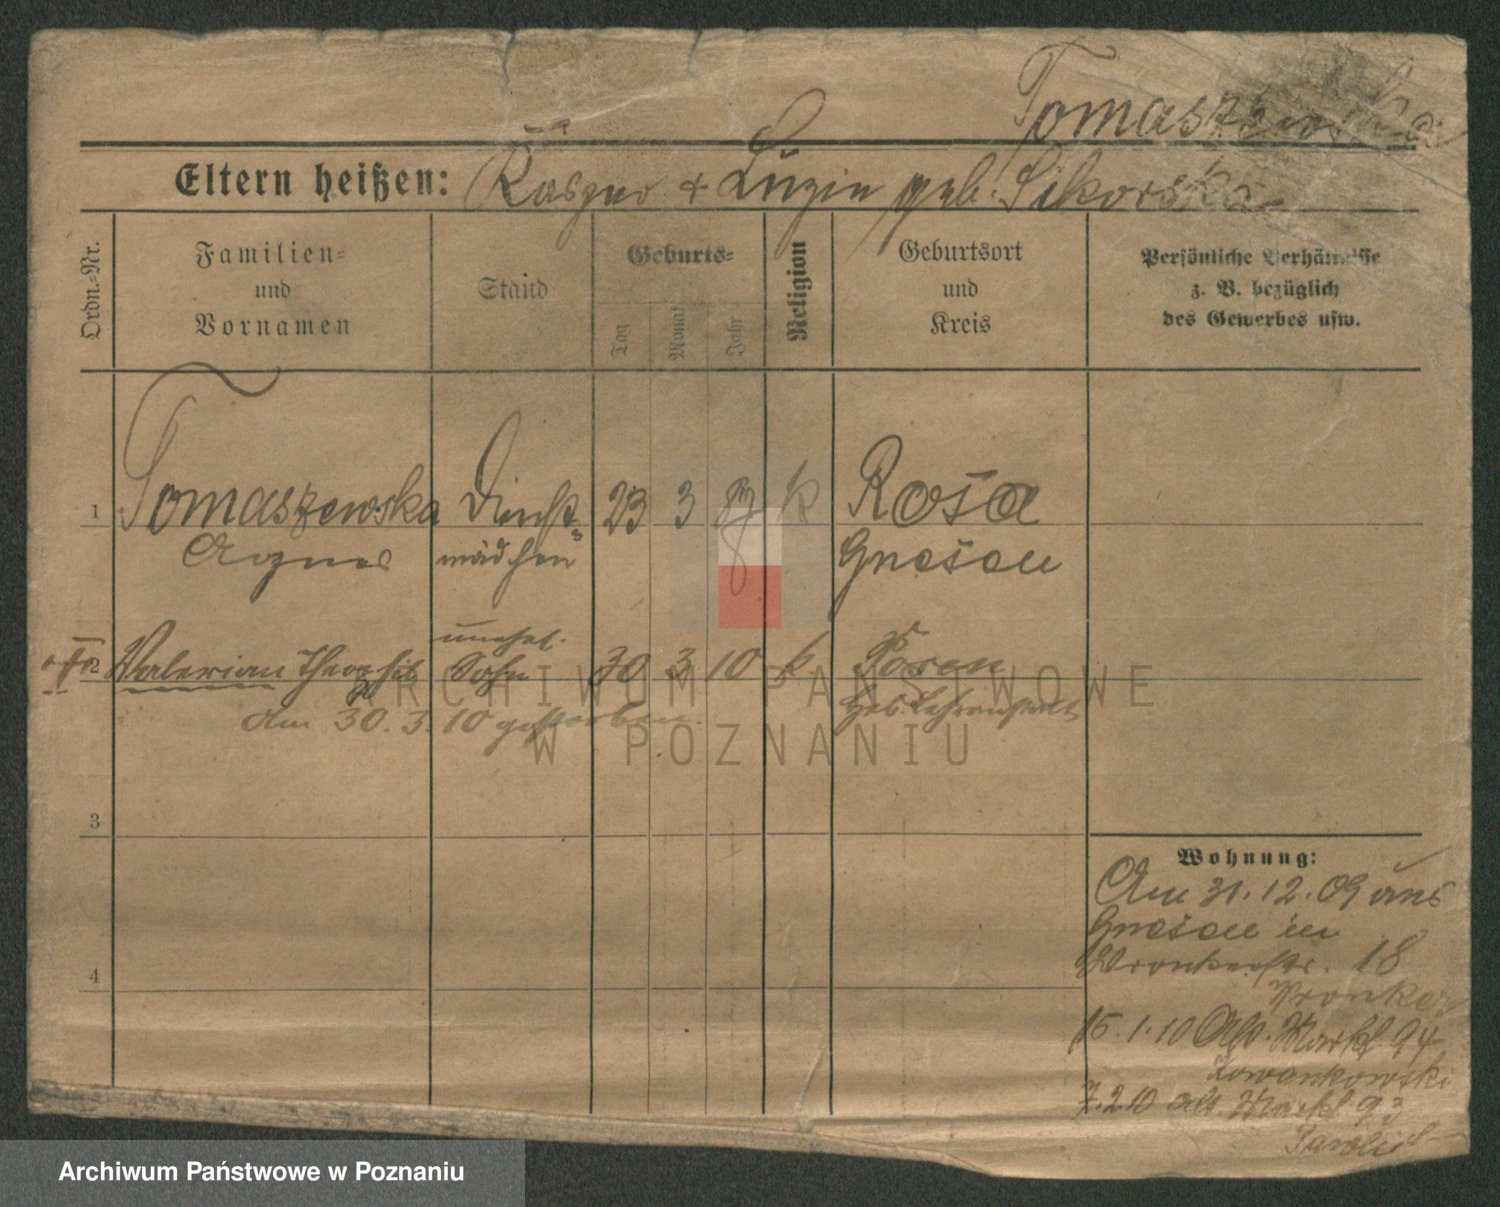 Tomaszewska
Eltern heißen: Kasper + Luzin geb. Sikorska
Ordn.-Nr.
Familien- und Vornamen
Stand
Geburts-
Tag
Monat
Jahr
Religion
Geburtsort und Kreis
Persönliche Verhältnisse
z. B. bezüglich
des Gewerbes usw.
1 Tomaszewska Dienst- 23 3 k Rosa
Agnes mädchen Gnesen
unehel.
2 Valerian Theophil Sohn 30 3 10 k Posen
am 30. 3. 10 gestorben. Heb. Lehranstalt
3
4
Wohnung:
Am 31. 12. 09 aus
Gnesen in
Wronkerstr. 18
15. 1. 10 Alt. Markt 94
7. 2. 10 Alt. Markt 93
ARCHIWUM PAŃSTWOWE
W POZNANIU
Archiwum Państwowe w Poznaniu